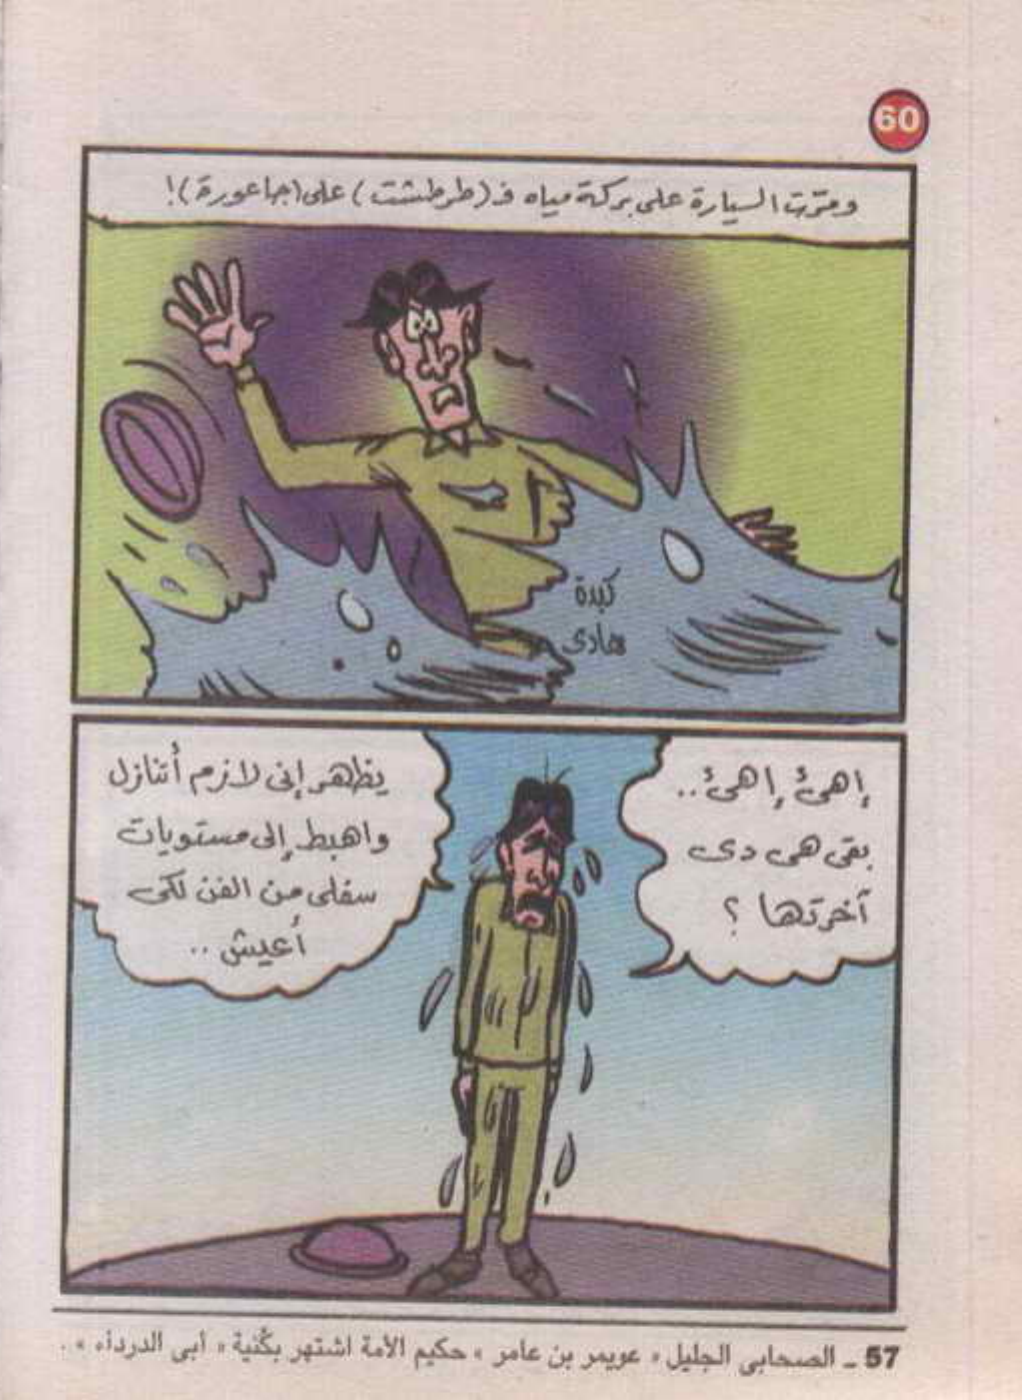 60
ومرّت السيارة على بركة مياه فـ (طرطشت) على (جاعورة)!
كبدة
هادى
إهئ إهئ..
بقى هى دى
آخرتها ؟
يظهر إنى لازم أتنازل
واهبط إلى مستويات
سفلى من الفن لكى
أعيش ..
57 ـ الصحابى الجليل « عويمر بن عامر » حكيم الأمة اشتهر بكُنية « أبى الدرداء » .